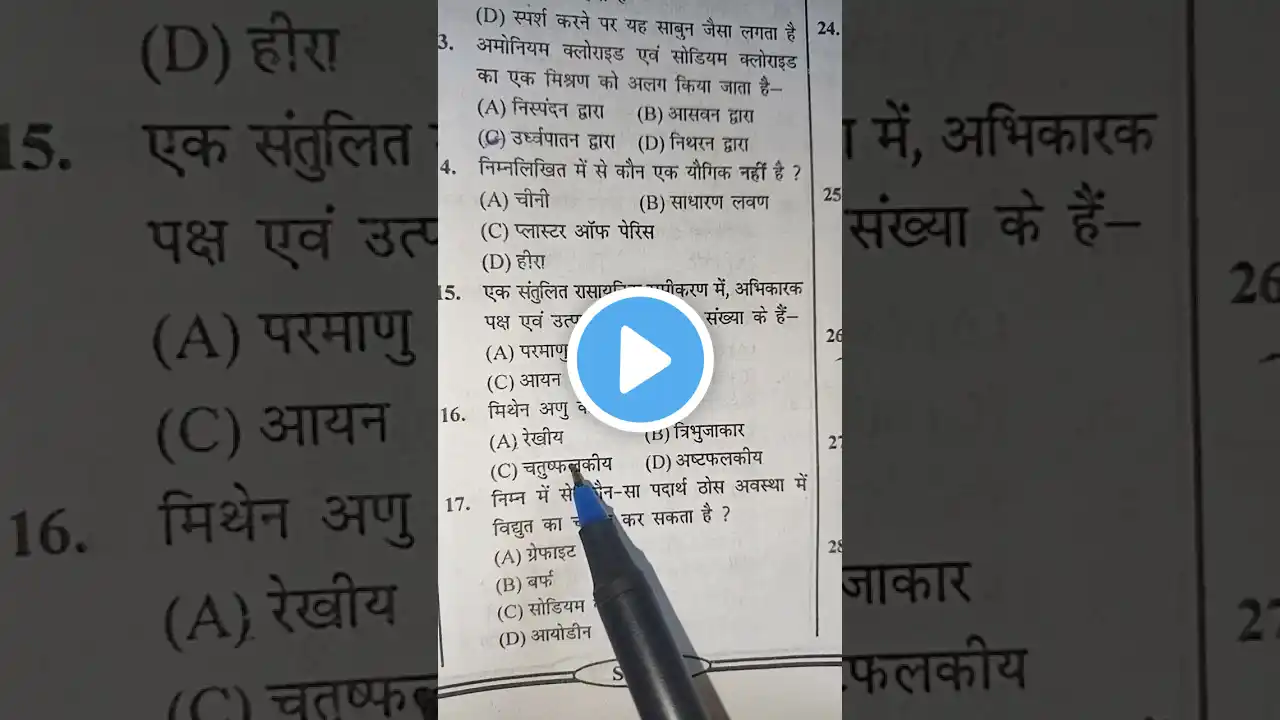 (D) स्पर्श करने पर यह साबुन जैसा लगता है
3. अमोनियम क्लोराइड एवं सोडियम क्लोराइड
का एक मिश्रण को अलग किया जाता है–
(A) निस्पंदन द्वारा (B) आसवन द्वारा
(C) उर्ध्वपातन द्वारा (D) निथरन द्वारा
4. निम्नलिखित में से कौन एक यौगिक नहीं है ?
(A) चीनी (B) साधारण लवण
(C) प्लास्टर ऑफ पेरिस
(D) हीरा
15. एक संतुलित समीकरण में, अभिकारक
पक्ष एवं संख्या के हैं–
(A) परमाणु
(C) आयन
16. मिथेन अणु
(A) रेखीय (B) त्रिभुजाकार
(C) चतुष्फलकीय (D) अष्टफलकीय
17. निम्न में से कौन-सा पदार्थ ठोस अवस्था में
विद्युत का कर सकता है ?
(A) ग्रेफाइट
(B) बर्फ
(C) सोडियम
(D) आयोडीन
24.
25
26
27
28
(D) हीरा
15. एक संतुलित में, अभिकारक
पक्ष एवं संख्या के हैं–
(A) परमाणु
(C) आयन
16. मिथेन अणु
(A) रेखीय
(C)
26
27